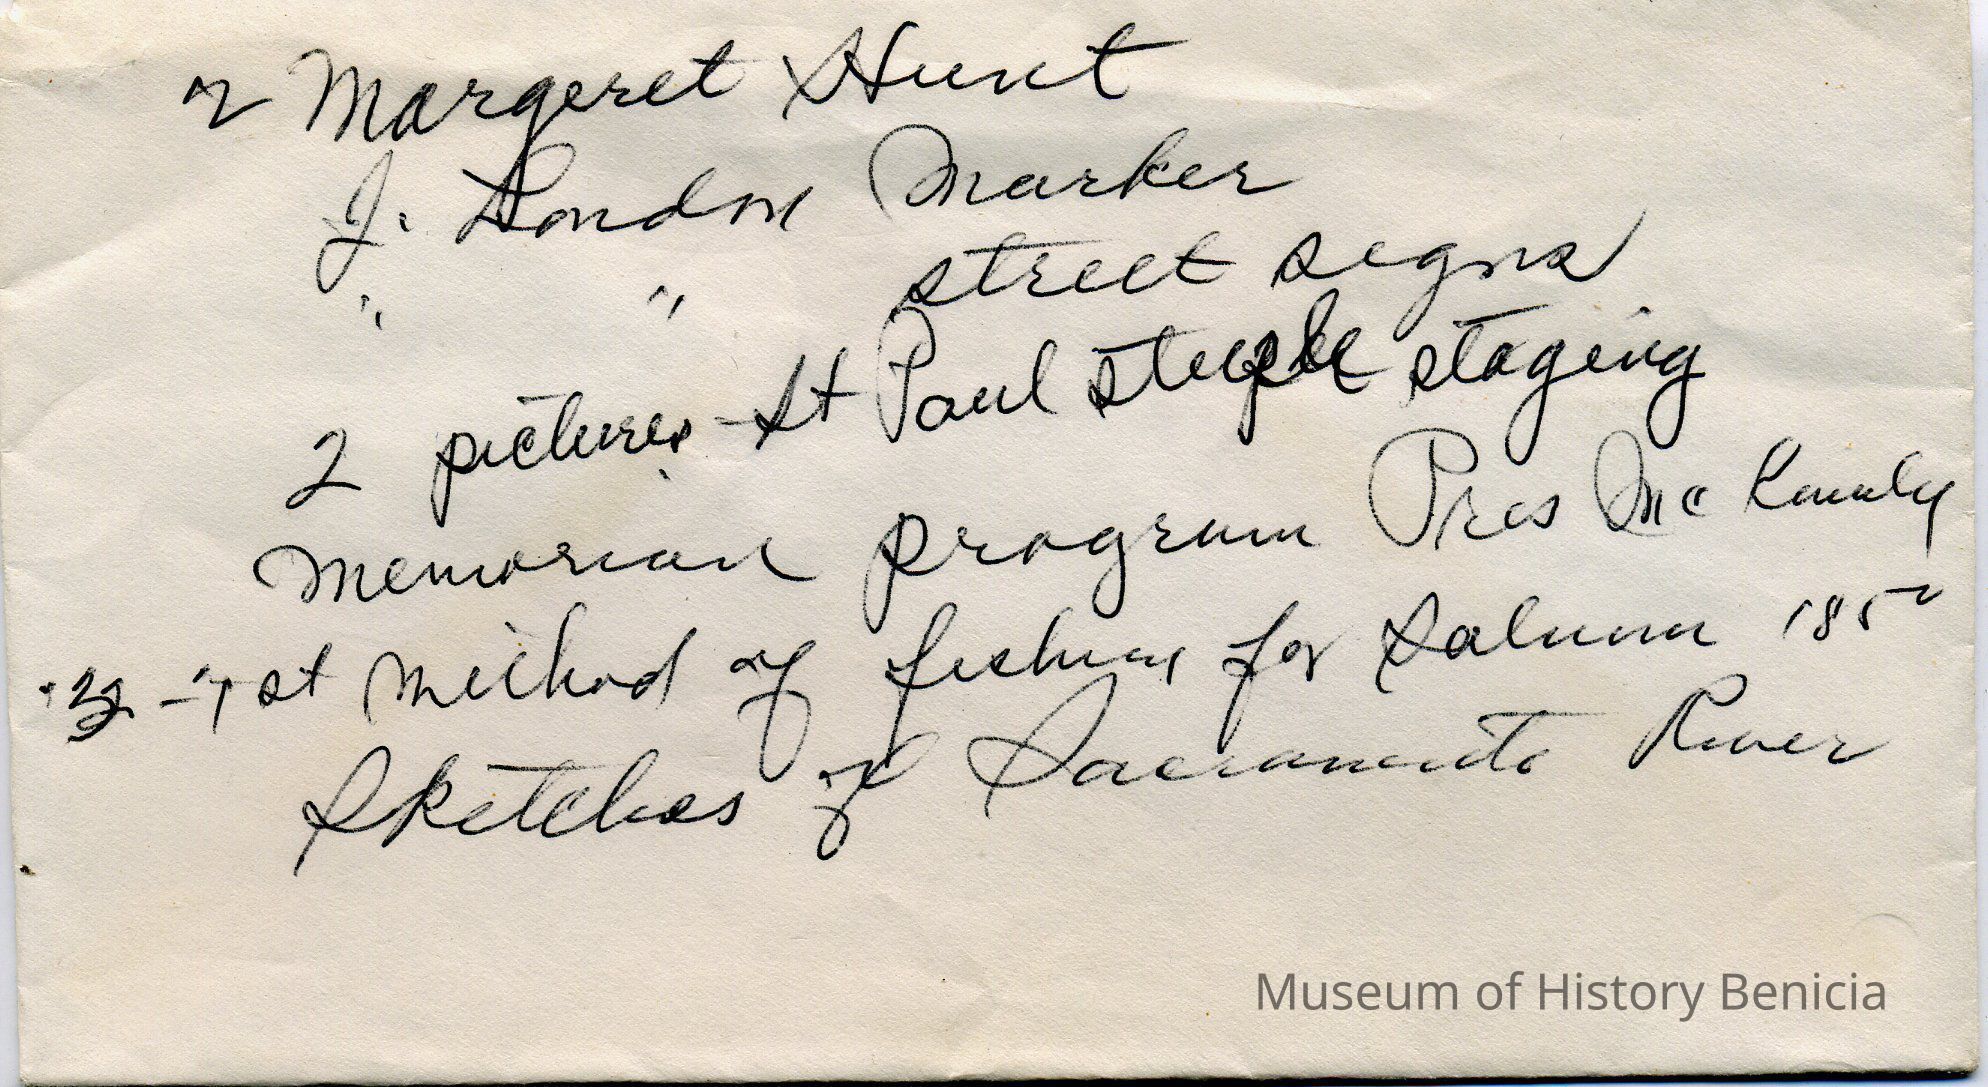 2 Margeret Hunt
J. London Marker
" " street signs
2 pictures - St Paul steeple staging
Memorian program Pres McKinnly
2 - 1st Method of fishing for Salmon 1850
Sketches of Sacramento River
Museum of History Benicia